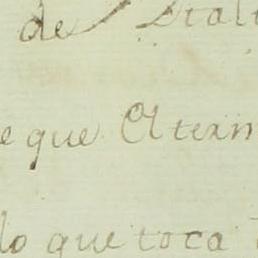 de Ital
e que El term
lo que toca